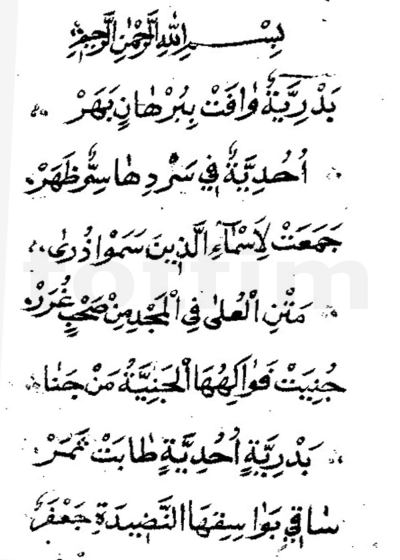 بِسْمِ اللهِ الرَّحْمٰنِ الرَّحِيْمِ
بَدْرِيَّةٌ وَافَتْ بِبُرْهَانٍ بَهَرْ
اُحُدِيَّةٌ فِي سَرْدِهَا سِرٌّ ظَهَرْ
جَمَعَتْ لِاَسْمَآءِ الَّذِينَ سَمَوْا ذُرىٰ
مَتْنِ الْعُلىٰ فِي الْمَجْدِ مِنْ صَحْبٍ غُرَرْ
جُنِيَتْ فَوَاكِهُهَا الْجَنِيَّةُ مَنْ جَنَا
بَدْرِيَّةٍ اُحُدِيَّةٍ طَابَتْ ثَمَرْ
بَوَاسِقِهَا النَّضِيدَةِ جَعْفَرٌ